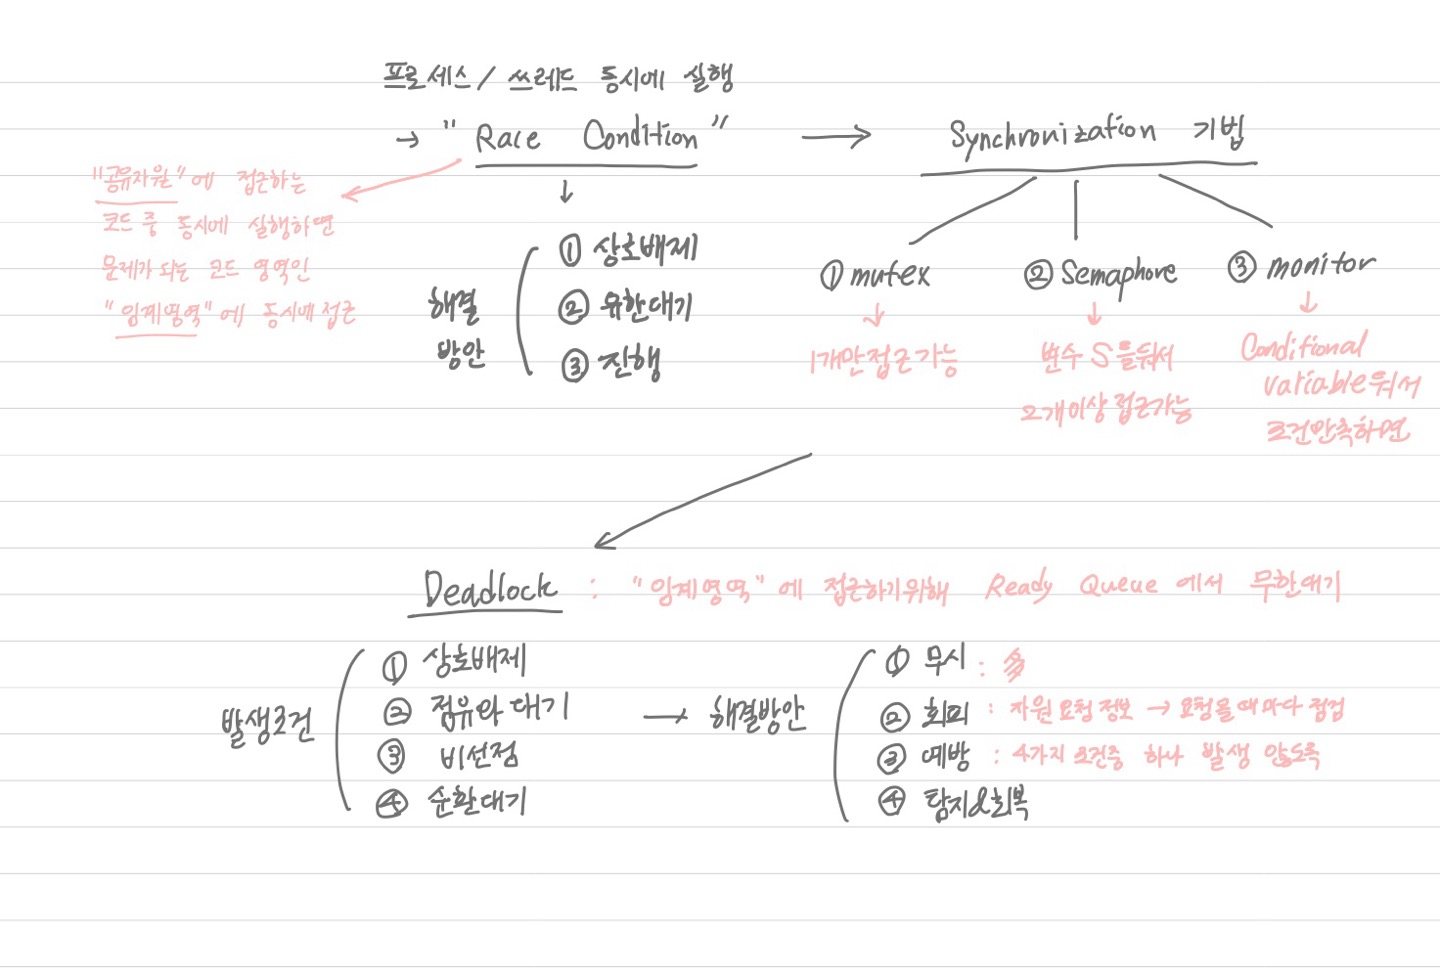 프로세스 / 쓰레드 동시에 실행
→ " Race Condition " → Synchronization 기법
"공유자원"에 접근하는
코드 중 동시에 실행하면
문제가 되는 코드 영역인
"임계영역"에 동시에 접근
해결
방안
① 상호배제
② 유한대기
③ 진행
① mutex
→ 1개만 접근 가능
② Semaphore
→ 변수 S를 둬서
2개이상 접근가능
③ monitor
→ Conditional
variable 둬서
조건만족하면
Deadlock : "임계영역"에 접근하기위해 Ready Queue 에서 무한대기
발생조건
① 상호배제
② 점유와 대기
③ 비선점
④ 순환대기
→ 해결방안
① 무시 : 多
② 회피 : 자원 요청 정보 → 요청올때마다 점검
③ 예방 : 4가지 조건중 하나 발생 않도록
④ 탐지&회복